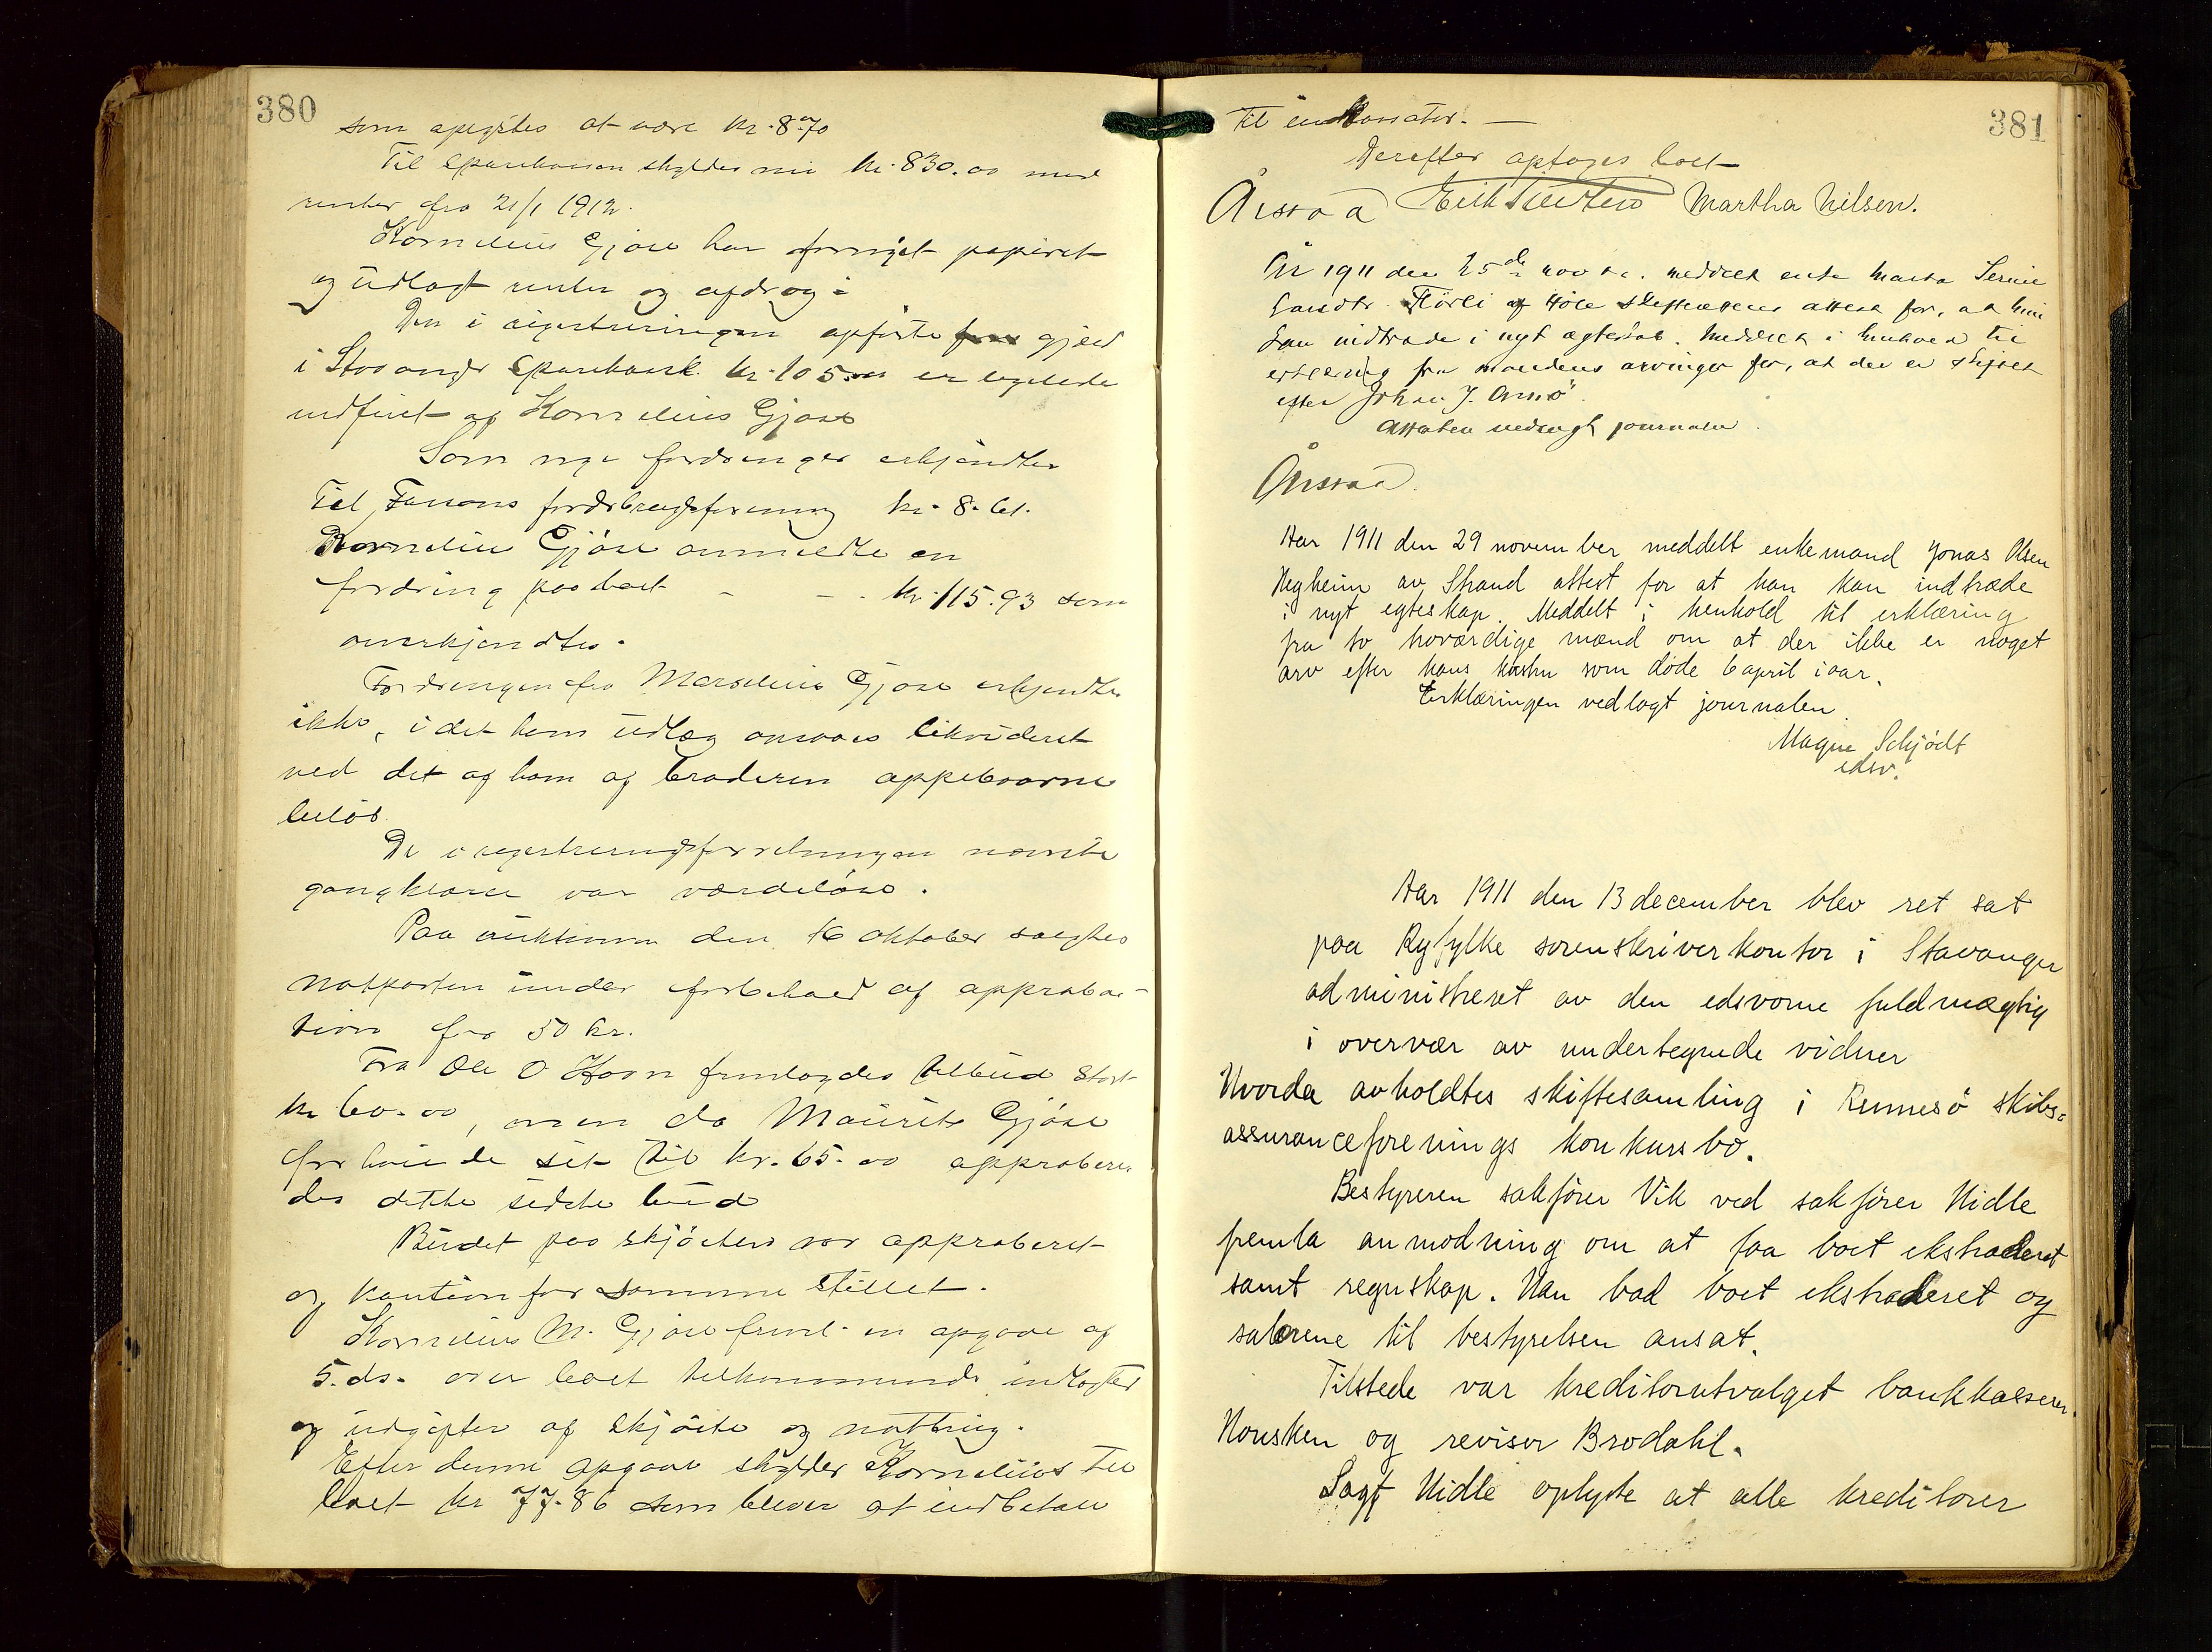 380
som opgittes at være kr. 8.70
Til Sparekassen skyldes nu kr. 830.00 med
renter fra 21/1 1912.
Kornelius Gjøse har fornyet papiret
og udlagt renter og afdrag.
Den i registreringen opførte gjeld
i Stavanger Sparekasse kr. 105.00 er ligeledes
indfriet af Kornelius Gjøse
Som nye fordringer erkjendtes
Til forbrugsforening kr. 8.61.
Kornelius Gjøse anmeldte en
fordring paa boet - - kr. 115.93 som
anerkjendtes.
Fordringen fra Marselius Gjøse erkjendtes
ikke, idet hans udlæg ansaaes likvideret
ved det af ham og broderen oppebaarne
beløb.
De i registreringsforretningen nævnte
gangklæder var værdiløse.
Paa auktionen den 16 oktober solgtes
notparten under forbehold af approba-
tion for 50 kr.
Fra Ole O fremlagdes tilbud stort
kr 60.00, men da Maurits Gjøse
forhøiede sit til kr. 65.00 approbere-
des dette sidste bud
Budet paa skjøiten var approberet
og kaution for samme stillet.
Kornelius M. Gjøse freml. en opgave af
5. ds. over boet tilkommende indtægter
og udgifter af skjøite og notbrug.
Efter denne opgave skylder Kornelius til
boet kr 77.86 som bliver at indbetale
381
til inkassator. —
Derefter optoges boet
Aarstad Martha Nilsen.
År 1911 den 25de nov. meddelt enke Marta Serine
Larsdtr. Tjørli af Høle skifterettens attest for, at hun
kan indtræde i nyt ægteskab. Meddelt i henhold til
erklæring fra mandens arvinger for, at der er skiftet
efter Johan J.
Attesten vedlagt journalen.
Aarstad.
Aar 1911 den 29 november meddelt enkemand Jonas Olsen
Hegheim av Strand attest for at han kan indtræde
i nyt egteskap. Meddelt i henhold til erklæring
fra to troværdige mænd om at der ikke er noget
arv efter hans hustru som døde 6 april i aar.
Erklæringen vedlagt journalen.
Magne Schjødt
edsv.
Aar 1911 den 13 december blev ret sat
paa Ryfylke sorenskriverkontor i Stavanger
administreret av den edsvorne fuldmægtig
i overvær av undertegnede vidner
Hvorda avholdtes skiftesamling i Rennesø skibs-
assuranceforenings konkursbo.
Bestyreren sakfører Vik ved sakfører Hidle
fremla anmodning om at faa boet ekstraderet
samt regnskap. Han bad boet ekstraderet og
salærene til bestyrelsen ansat.
Tilstede var kreditorutvalget bankkasserer
Housken og revisor Brodahl.
Sagf Hidle oplyste at alle kreditorer